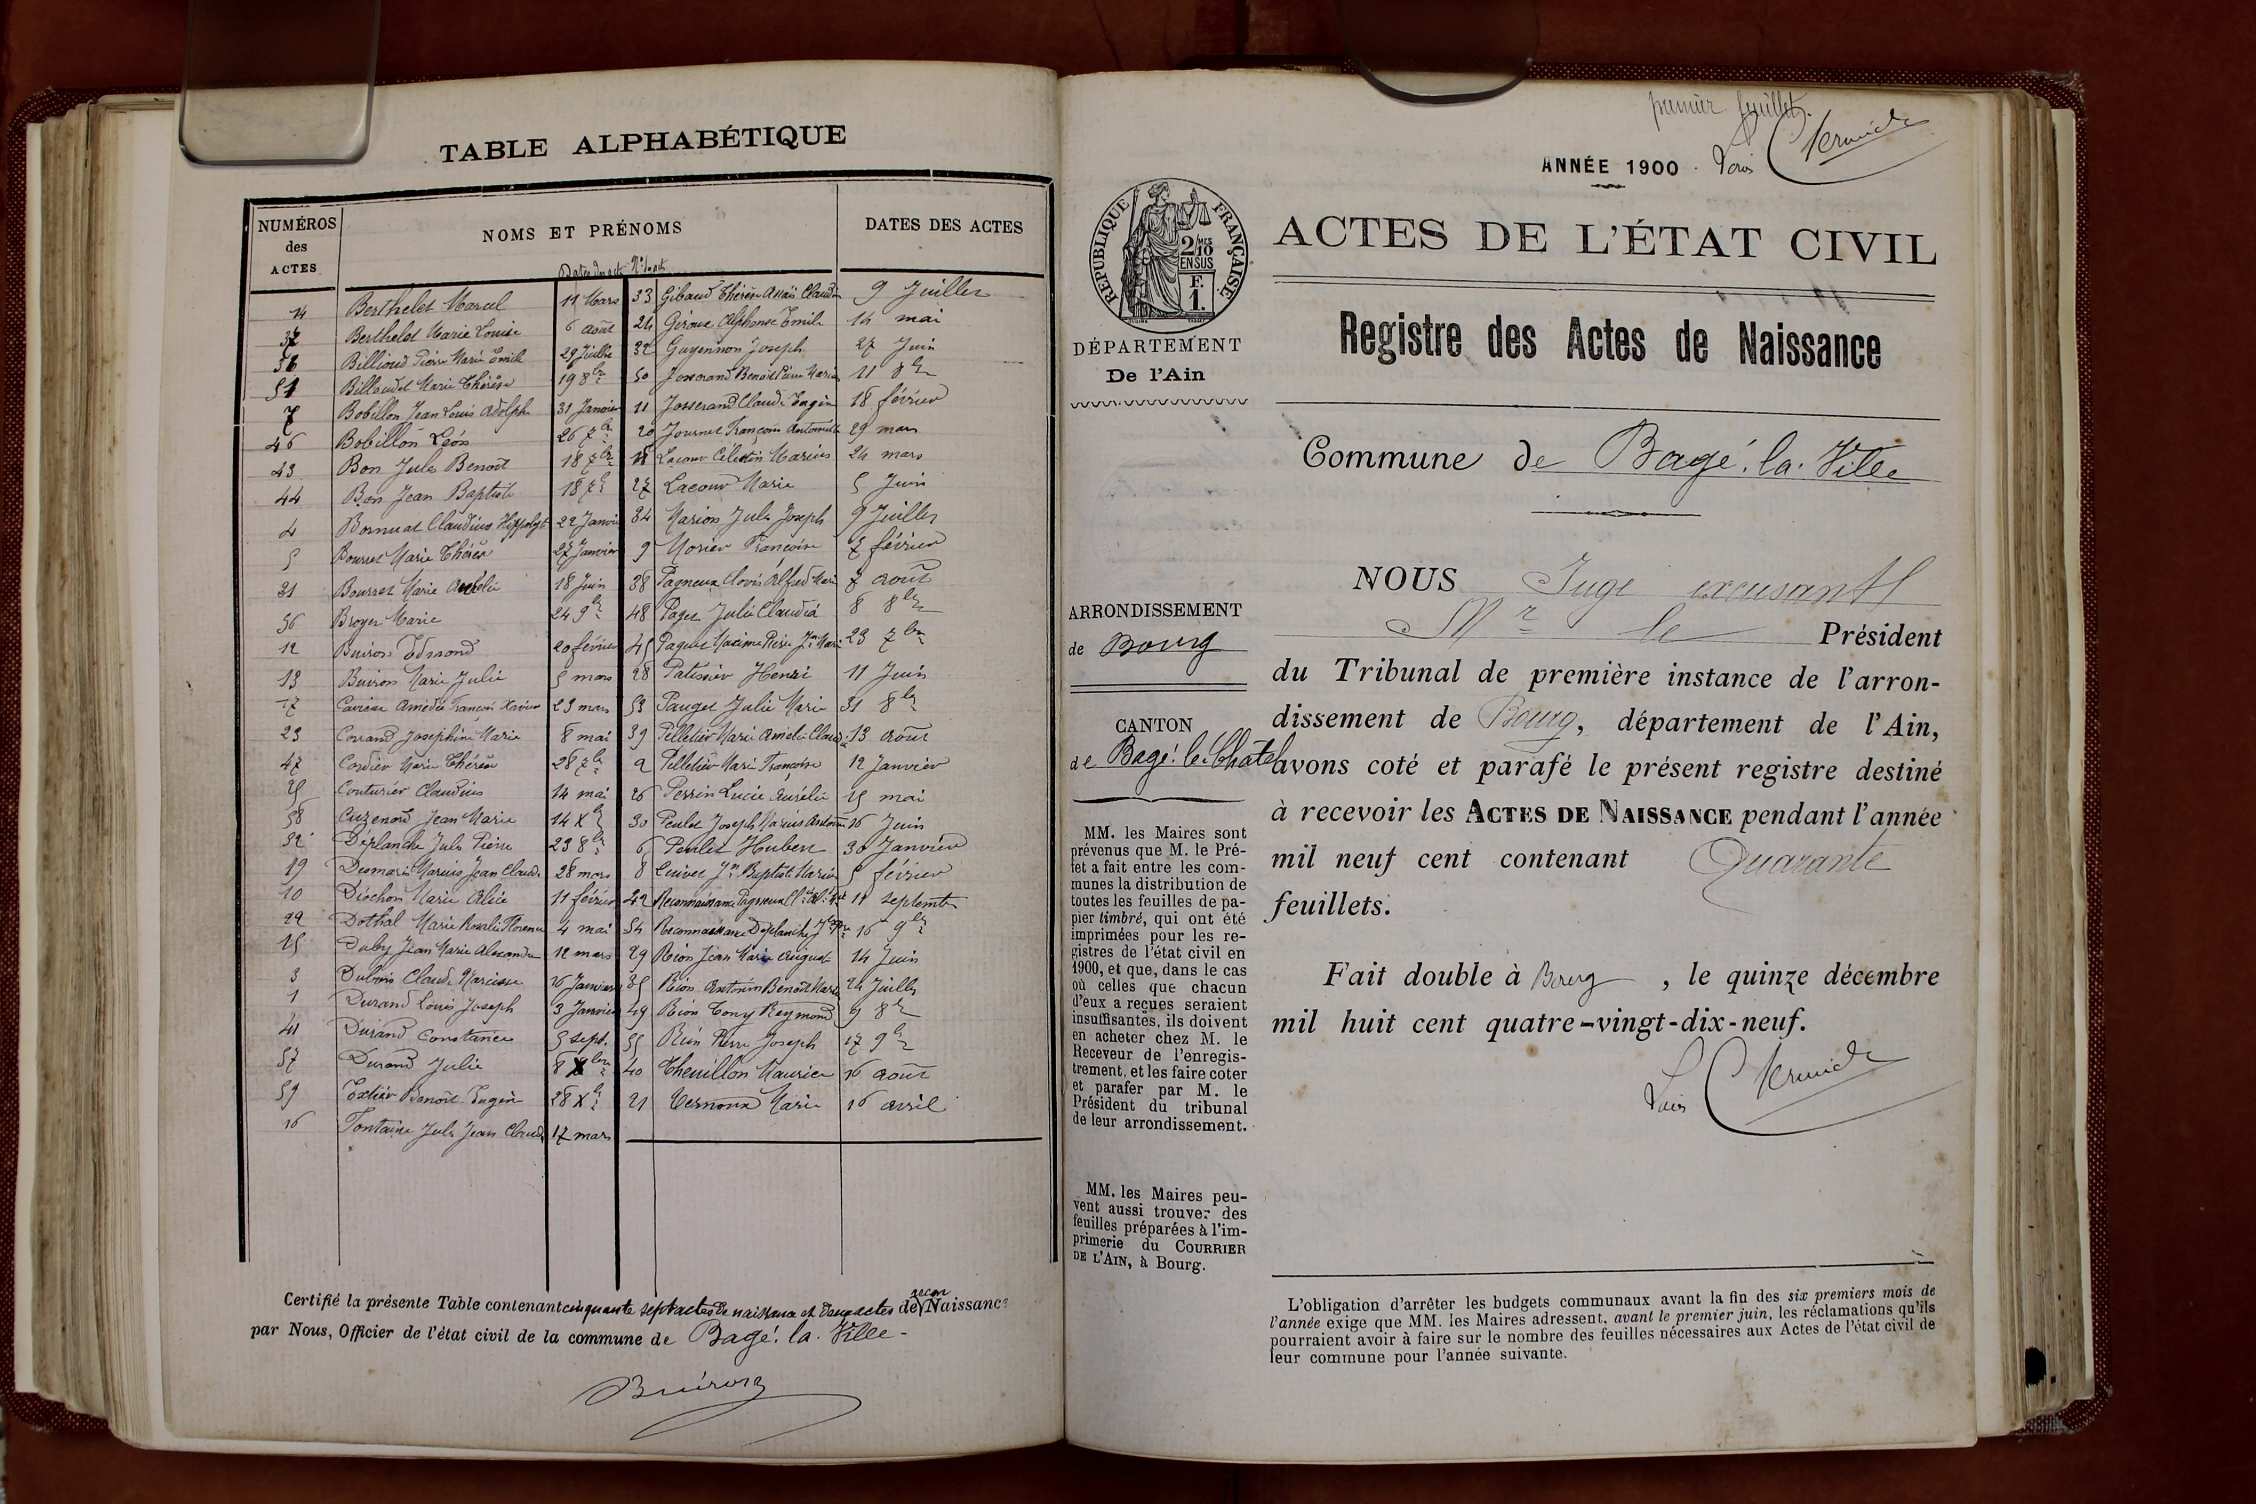 TABLE ALPHABÉTIQUE
NUMÉROS des ACTES
NOMS ET PRÉNOMS
DATES DES ACTES
14 Berthelet Marcel 11 Mars
Berthelet Marie Louise 6 août
Billioud Pierre Marie Emile 29 Juillet
51 Billoudet Marie Thérèse 19 8bre
7 Bobillon Jean Louis Adolphe 31 Janvier
46 Bobillon Léon 26 7bre
43 Bon Jules Benoît 18 7bre
44 Bon Jean Baptiste 18 7bre
4 Bornuat Claudius Hippolyte 22 Janvier
5 Bourset Marie Thérèse 27 Janvier
31 Bourset Marie 18 Juin
56 Broyer Marie 24 9bre
12 Buiron Edmond 20 février
13 Buiron Marie Julie 5 mars
17 Amédée François Xavier 23 mars
23 Corrand Joséphine Marie 8 mai
47 Cordier Marie Thérèse 28 7bre
25 Couturier Claudius 14 mai
58 Cuzenord Jean Marie 14 Xbre
52 Déplanche Jules Pierre 23 8bre
19 Desmaris Marius Jean Claude 28 mars
10 Diochon Marie Alice 11 février
22 Dothal Marie Rosalie Florence 4 mai
15 Duby Jean Marie Alexandre 12 mars
3 Dubois Claude Narcisse 16 Janvier
1 Durand Louis Joseph 3 Janvier
41 Durand Constance 5 sept.
57 Durand Julie 8 Xbre
59 Extier Benoît Eugène 28 Xbre
16 Fontaine Jules Jean Claude 17 mars
33 Gibaud Thérèse Anaïs Claudine 9 Juillet
24 Giroux Alphonse Emile 14 mai
32 Guyennon Joseph 27 Juin
50 Josserand Benoît Pierre Marie 11 8bre
11 Josserand Claude Eugène 18 février
20 Journet François Antoine 29 mars
18 Lacour Célestin Marius 24 mars
27 Lacour Marie 5 Juin
34 Marion Jules Joseph 9 Juillet
9 Morier Françoise 7 février
38 Pagneux Clovis Alfred Marie 7 août
48 Paget Julie Claudia 8 8bre
45 Paquet Maxime Pierre Jn Marie 23 7bre
28 Patissier Henri 11 Juin
53 Pauget Julie Marie 31 8bre
39 Pelletier Marie Amélie Claudia 13 août
2 Pelletier Marie Françoise 12 Janvier
26 Perrin Lucie Aurélie 15 mai
30 Peulet Joseph Marius Antoine 16 Juin
6 Peulet Hubert 30 Janvier
8 Jn Baptiste Marie 5 février
42 Reconnaissance Pagneux 11 septembre
54 Reconnaissance Déplanche 16 9bre
29 Rion Jean Marie August 14 Juin
35 Rion Antonin Benoît Marie 24 Juillet
49 Rion Tony Reymond 9 8bre
55 Rion Pierre Joseph 17 9bre
40 Thevillon Maurice 16 août
21 Vernoux Marie 16 avril
Certifié la présente Table contenant cinquante sept actes de naissance et deux actes de recon Naissance
par Nous, Officier de l'état civil de la commune de Bagé-la-Ville -
Buiron
premier feuillet.
ANNÉE 1900
RÉPUBLIQUE FRANÇAISE
2/10 MES
EN SUS
F.
1.
ACTES DE L'ÉTAT CIVIL
Registre des Actes de Naissance
Commune de Bagé-la-Ville
DÉPARTEMENT
De l'Ain
ARRONDISSEMENT
de Bourg
CANTON
de Bagé-le-Châtel
MM. les Maires sont
prévenus que M. le Pré-
fet a fait entre les com-
munes la distribution de
toutes les feuilles de pa-
pier timbré, qui ont été
imprimées pour les re-
gistres de l'état civil en
1900, et que, dans le cas
où celles que chacun
d'eux a reçues seraient
insuffisantes, ils doivent
en acheter chez M. le
Receveur de l'enregis-
trement, et les faire coter
et parafer par M. le
Président du tribunal
de leur arrondissement.
MM. les Maires peu-
vent aussi trouver des
feuilles préparées à l'im-
primerie du COURRIER
DE L'AIN, à Bourg.
NOUS Juge excusant
Mr le Président
du Tribunal de première instance de l'arron-
dissement de Bourg, département de l'Ain,
avons coté et parafé le présent registre destiné
à recevoir les ACTES DE NAISSANCE pendant l'année
mil neuf cent contenant Quarante
feuillets.
Fait double à Bourg, le quinze décembre
mil huit cent quatre-vingt-dix-neuf.
L'obligation d'arrêter les budgets communaux avant la fin des six premiers mois de
l'année exige que MM. les Maires adressent, avant le premier juin, les réclamations qu'ils
pourraient avoir à faire sur le nombre des feuilles nécessaires aux Actes de l'état civil de
leur commune pour l'année suivante.